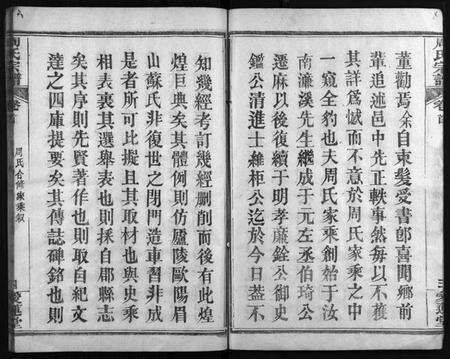 董勸焉余自束髮受書郎喜聞鄉前
輩追述邑中先正軼事然每以不獲
其詳爲憾而不意於周氏家乘之中
一窺全豹也夫周氏家乘創始于汝
南濂溪先生繼成于元左丞伯琦公
遷麻以後復續于明孝廉銓公御史
鑑公清進士維柜公迄於今日蓋不
三
愛蓮堂
知幾經考訂幾經刪削而後有此煌
煌巨典矣其體例則仿廬陵歐陽眉
山蘇氏非復世之閉門造車習非成
是者所可比擬且其取材也與史乘
相表裏其選舉表也則採自郡縣志
矣其序則先賢著作也則取自紀文
達之四庫提要矣其傳誌碑銘也則
周氏宗譜
卷首
周氏合修家乘叙
四
愛蓮堂